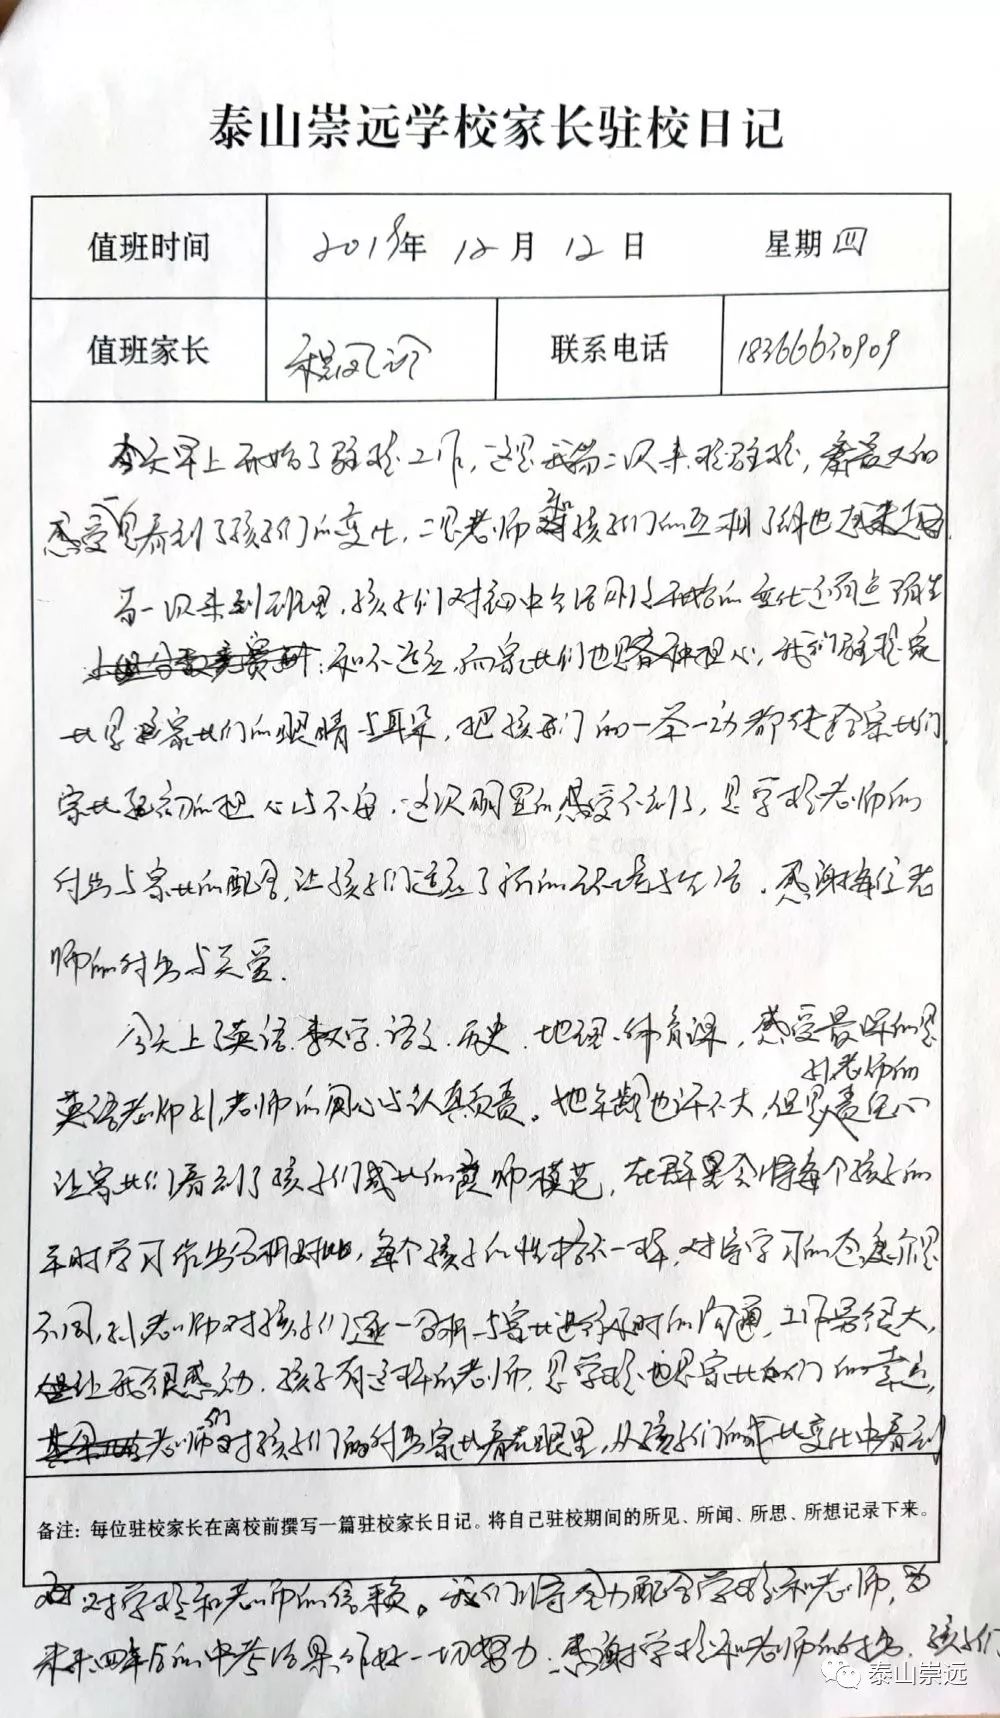 泰山崇远学校家长驻校日记
值班时间 2019年 12月 12日 星期四
值班家长 程风玲 联系电话 18366630909
今天早上开始了驻校工作,这是我第二次来校驻校,最大的
感受一是看到了孩子们的变化,二是老师和孩子们的互相了解也越来越
第一次来到班里,孩子们对初中生活开始的变化还有点陌生
和不适应,而家长们也是各种担心,我们驻校家
长是家长们的眼睛与耳朵,把孩子们的一举一动都传给家长们
家长起初的担心与不安,这次明显的感受不到了,是学校老师的
付出与家长的配合,让孩子们适应了新的环境与生活。感谢每位老
师的付出与关爱.
今天上了英语.数学.语文.历史.地理.体育课,感受最深的是
英语老师孔老师的用心与认真负责。她年龄也许不大,但是孔老师的责任心
让家长们看到了孩子们成长的良师模范,在群里会将每个孩子的
平时学习作出分析对比,每个孩子的性格不一样,对待学习的态度亦是
不同,孔老师对孩子们逐一分析与家长进行及时的沟通,工作量很大,
但让我很感动.孩子有这样的老师,是学校也是家长们的幸运,
老师们对孩子们的付出家长看在眼里,从孩子们的成长变化中看到
备注:每位驻校家长在离校前撰写一篇驻校家长日记。将自己驻校期间的所见、所闻、所思、所想记录下来。
对学校和老师的信赖。我们将全力配合学校和老师,为
未来四年后的中考结果作好一切努力.感谢学校和老师的付出.孩子们
泰山崇远